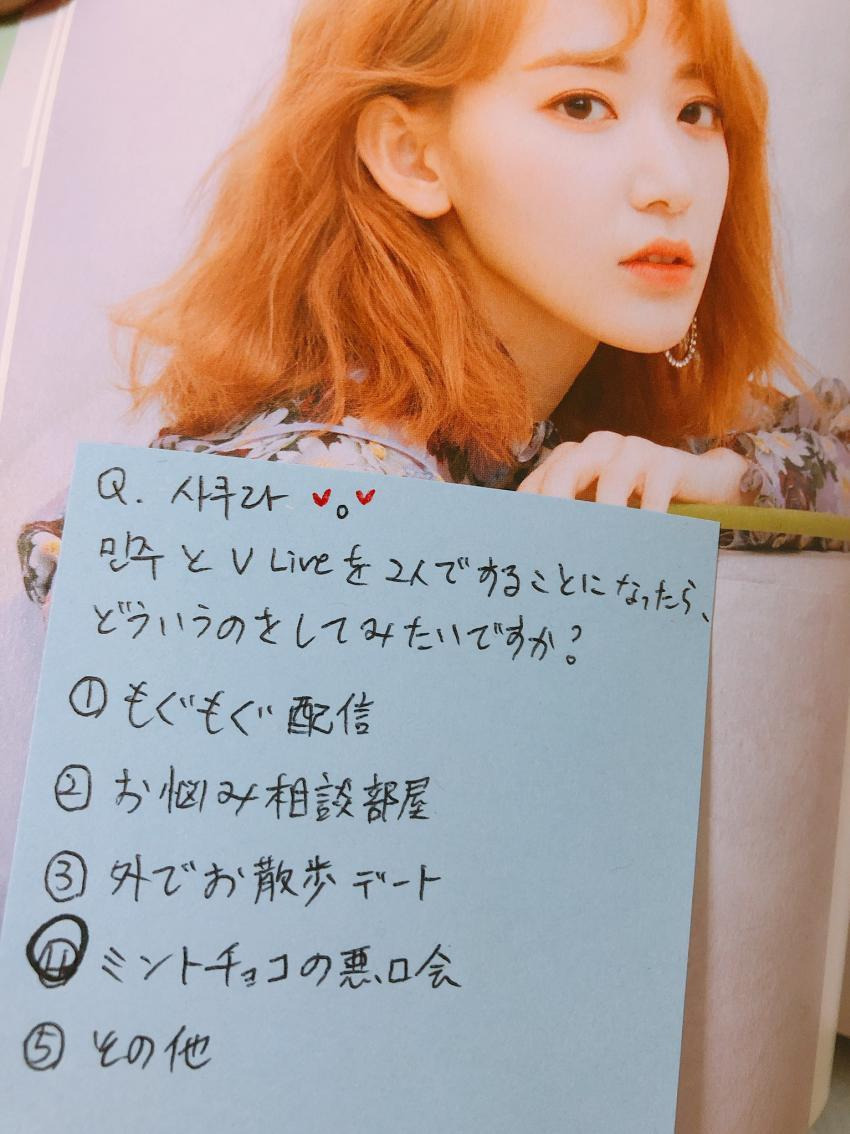 Q. 사쿠라 ♥。♥
민주 と V Liveを2人ですることになったら、
どういうのをしてみたいですか?
① もぐもぐ配信
② お悩み相談部屋
③ 外でお散歩デート
④ ミントチョコの悪口会
⑤ その他